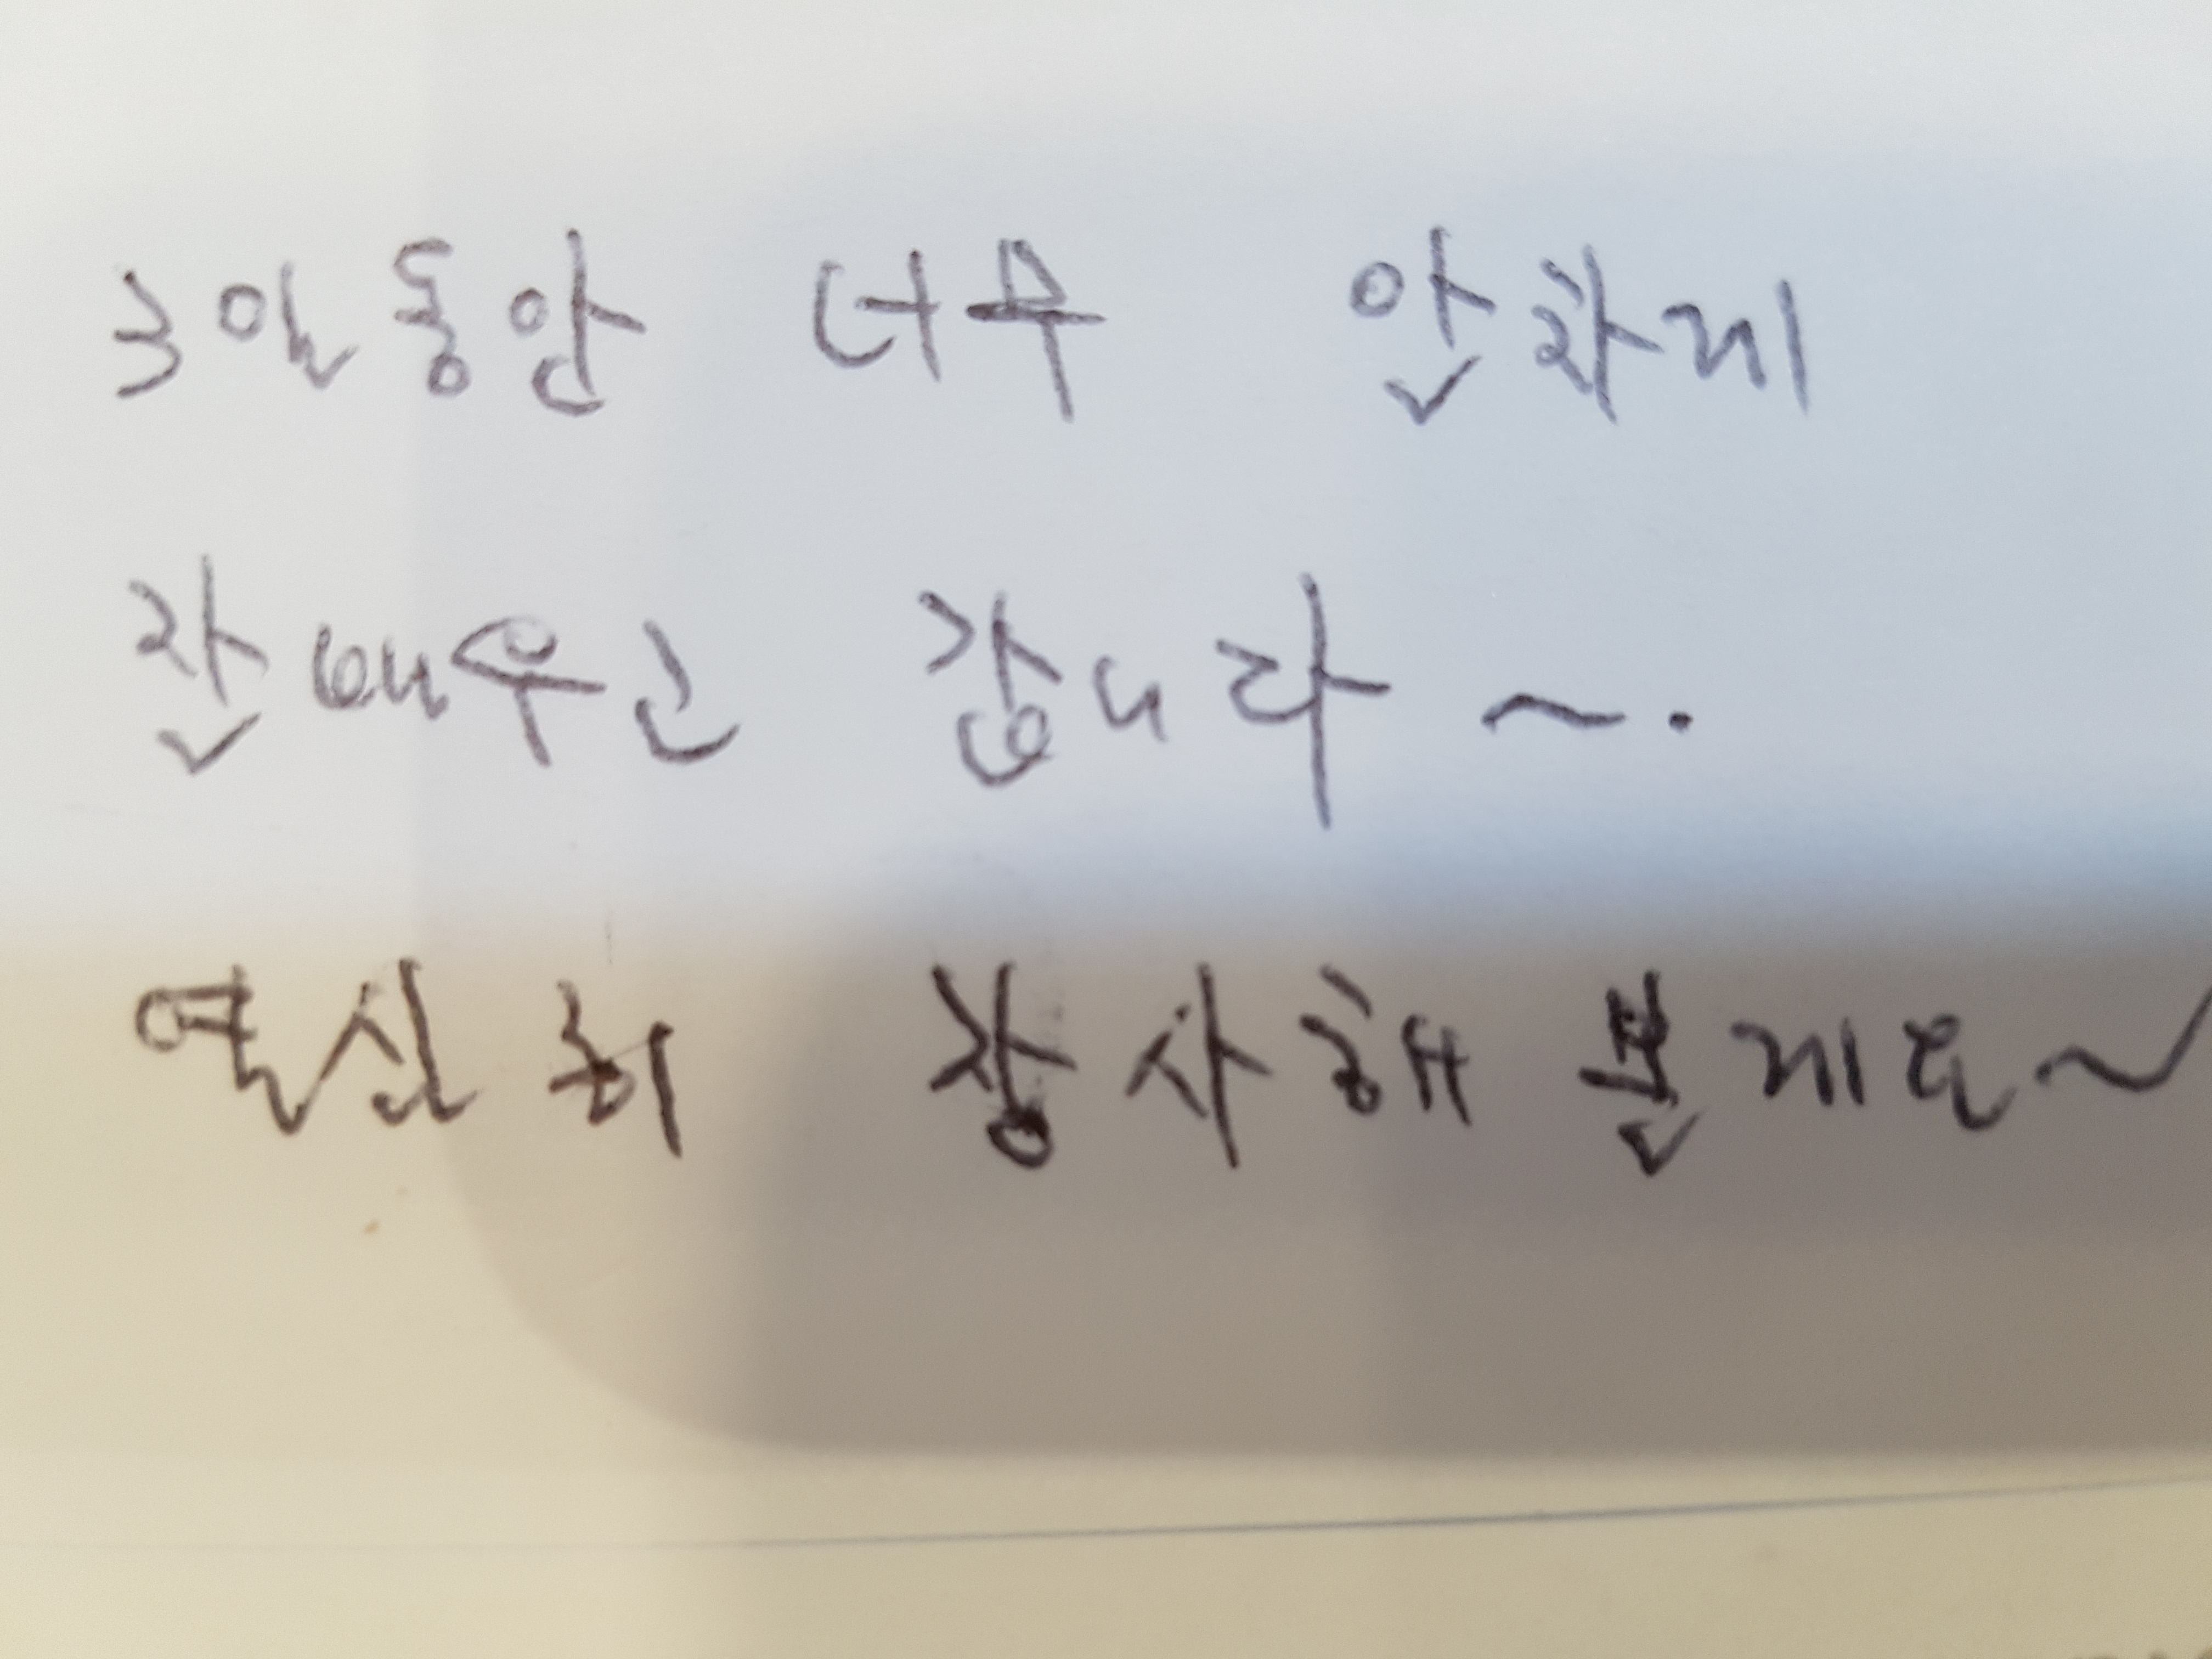 3일동안 너무 알차게
잘 배우고 갑니다 ~.
열심히 장사해 볼게요~